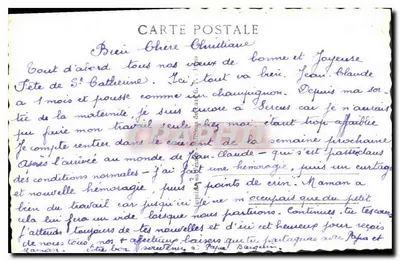 CARTE POSTALE
Bien Chère Christiane
Tout d'abord tous nos vœux de bonne et Joyeuse
Fête de Ste Catherine. Ici, tout va bien. Jean-Claude
a 1 mois et pousse comme un champignon. Depuis ma sor-
tie de la maternité je suis encore à car je n'aurais
pu faire mon travail seule chez moi, étant trop affaiblie.
Je compte rentrer dans le courant de la semaine prochaine
Après l'arrivée au monde de Jean-Claude - qui s'est passée dans
des conditions normales - j'ai fait une hémoragie, puis un curtage
et nouvelle hémoragie, puis points de crin. Maman a
bien du travail car jusqu'ici je ne m'occupais que du petit
cela lui fera un vide lorsque nous partirons. Continues tu tes
J'attends toujours de tes nouvelles et d'ici cet heureux jour reçois
de nous tous nos + affectueux baisers que tu partageras avec Papa et
Maman. Très bon souvenir à Papa